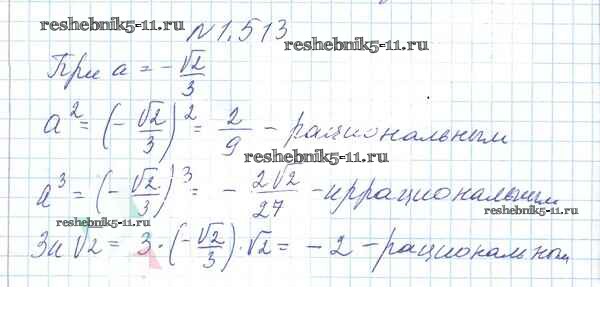 reshebnik5-11.ru
N 1.513
reshebnik5-11.ru
При a = -√2/3
a² = (-√2/3)² = 2/9 - рациональным
reshebnik5-11.ru
a³ = (-√2/3)³ = -2√2/27 - иррациональным
reshebnik5-11.ru reshebnik5-11.ru
3а√2 = 3·(-√2/3)·√2 = -2 - рациональном